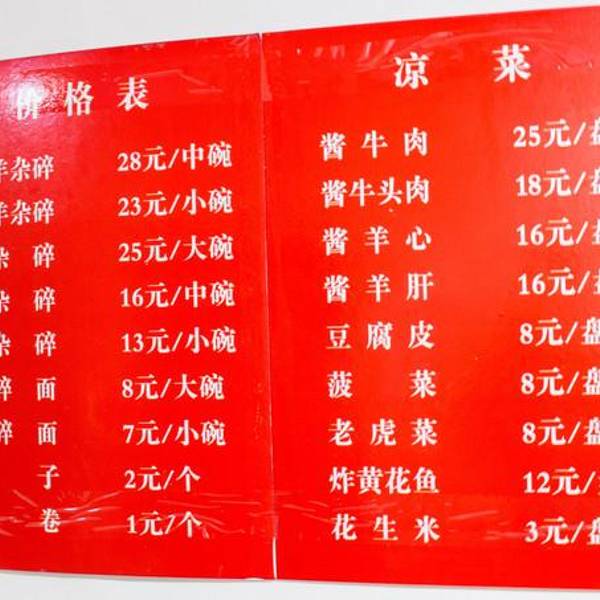 价格表
羊杂碎 28元/中碗
羊杂碎 23元/小碗
杂碎 25元/大碗
杂碎 16元/中碗
杂碎 13元/小碗
碎面 8元/大碗
碎面 7元/小碗
子 2元/个
卷 1元/个
凉菜
酱牛肉 25元/盘
酱牛头肉 18元/盘
酱羊心 16元/盘
酱羊肝 16元/盘
豆腐皮 8元/盘
菠菜 8元/盘
老虎菜 8元/盘
炸黄花鱼 12元/
花生米 3元/盘